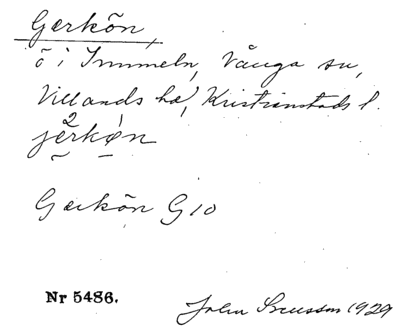 Gerkön,
ö i Immeln, Vånga sn,
Villands hd, Kristianstads l.
jèrkǿn
Gerkön G10
Nr 5486.
John Svensson 1929